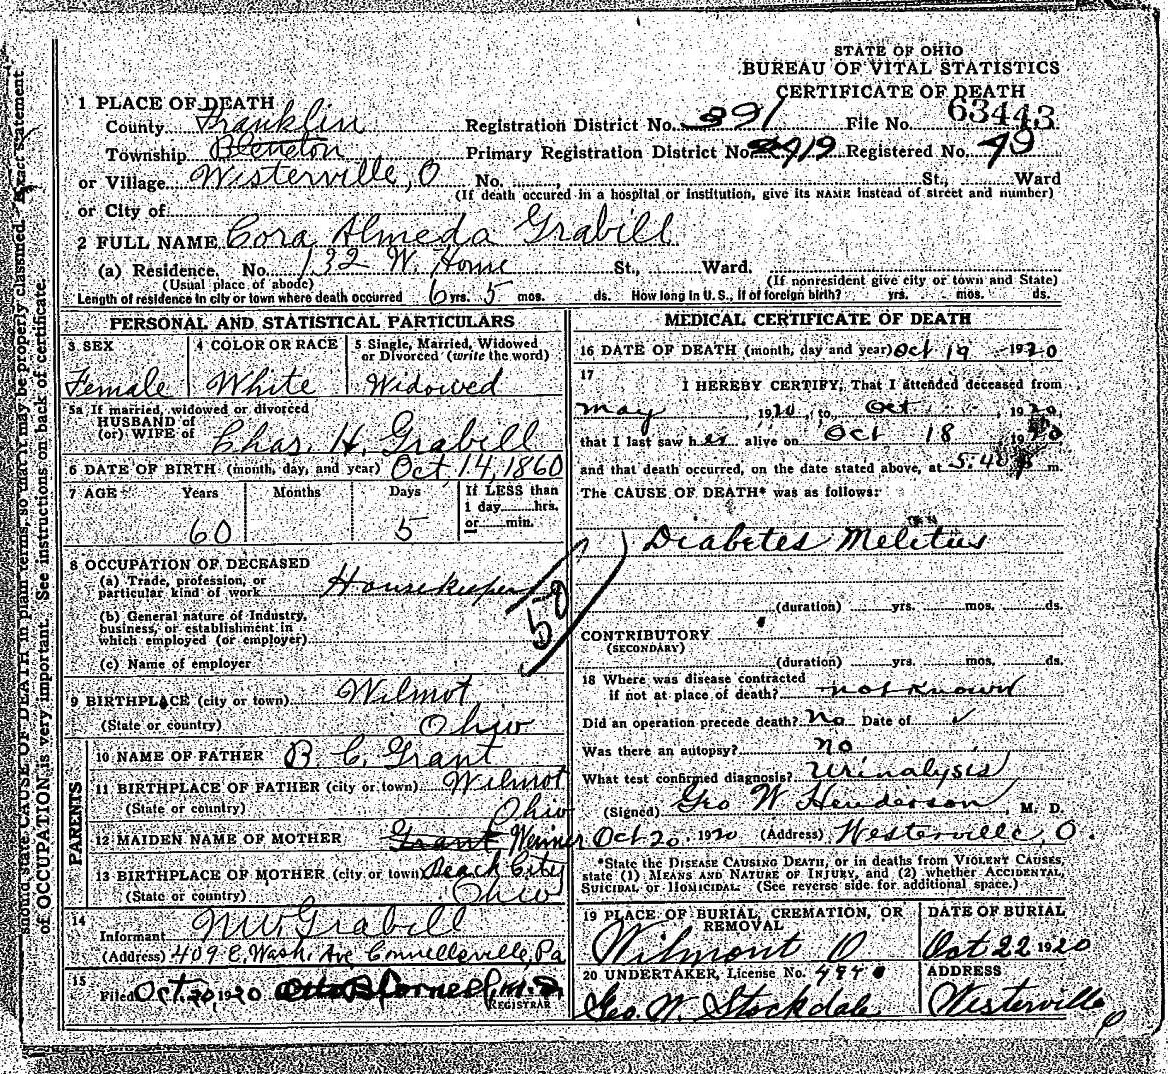 STATE OF OHIO
BUREAU OF VITAL STATISTICS
CERTIFICATE OF DEATH
1 PLACE OF DEATH
County Franklin Registration District No. 391 File No. 63443
Township Blendon Primary Registration District No. 2419 Registered No. 49
or Village Westerville, O No. St., Ward
(If death occured in a hospital or institution, give its NAME instead of street and number)
or City of
2 FULL NAME Cora Almeda Grabill
(a) Residence. No. 132 W. Home St., Ward.
(Usual place of abode) (If nonresident give city or town and State)
Length of residence in city or town where death occurred 6 yrs. 5 mos. ds. How long in U. S., if of foreign birth? yrs. mos. ds.
PERSONAL AND STATISTICAL PARTICULARS
3 SEX
Female
4 COLOR OR RACE
White
5 Single, Married, Widowed
or Divorced (write the word)
Widowed
5a If married, widowed or divorced
HUSBAND of
(or) WIFE of Chas. H. Grabill
6 DATE OF BIRTH (month, day, and year) Oct 14, 1860
7 AGE Years Months Days
60 5
If LESS than
1 day hrs.
or min.
8 OCCUPATION OF DECEASED
(a) Trade, profession, or
particular kind of work Housekeeper
(b) General nature of Industry,
business, or establishment in
which employed (or employer)
(c) Name of employer
50
9 BIRTHPLACE (city or town) Wilmot
(State or country) Ohio
PARENTS
10 NAME OF FATHER B. C. Grant
11 BIRTHPLACE OF FATHER (city or town) Wilmot
(State or country) Ohio
12 MAIDEN NAME OF MOTHER Grant Weimer
13 BIRTHPLACE OF MOTHER (city or town) Beach City
(State or country) Ohio
14
Informant Grabill
(Address) 409 E. Wash. Ave Connellsville, Pa
15
Filed Oct. 20 1920
REGISTRAR
MEDICAL CERTIFICATE OF DEATH
16 DATE OF DEATH (month, day and year) Oct 19 1920
17
I HEREBY CERTIFY, That I attended deceased from
May, 1920, to Oct, 1920,
that I last saw her alive on Oct 18, 1920
and that death occurred, on the date stated above, at 5:40 m.
The CAUSE OF DEATH* was as follows:
Diabetes Melitus
(duration) yrs. mos. ds.
CONTRIBUTORY
(SECONDARY)
(duration) yrs. mos. ds.
18 Where was disease contracted
if not at place of death? not known
Did an operation precede death? No Date of ✓
Was there an autopsy? no
What test confirmed diagnosis? Urinalysis
(Signed) Geo W Henderson, M. D.
Oct 20, 1920 (Address) Westerville, O.
*State the DISEASE CAUSING DEATH, or in deaths from VIOLENT CAUSES,
state (1) MEANS AND NATURE OF INJURY, and (2) whether ACCIDENTAL,
SUICIDAL or HOMICIDAL. (See reverse side for additional space.)
19 PLACE OF BURIAL, CREMATION, OR
REMOVAL
Wilmont O
DATE OF BURIAL
Oct 22 1920
20 UNDERTAKER, License No.
Geo. W. Stockdale
ADDRESS
Westerville
should state CAUSE OF DEATH in plain terms, so that it may be properly classified. Exact statement
of OCCUPATION is very important. See instructions on back of certificate.